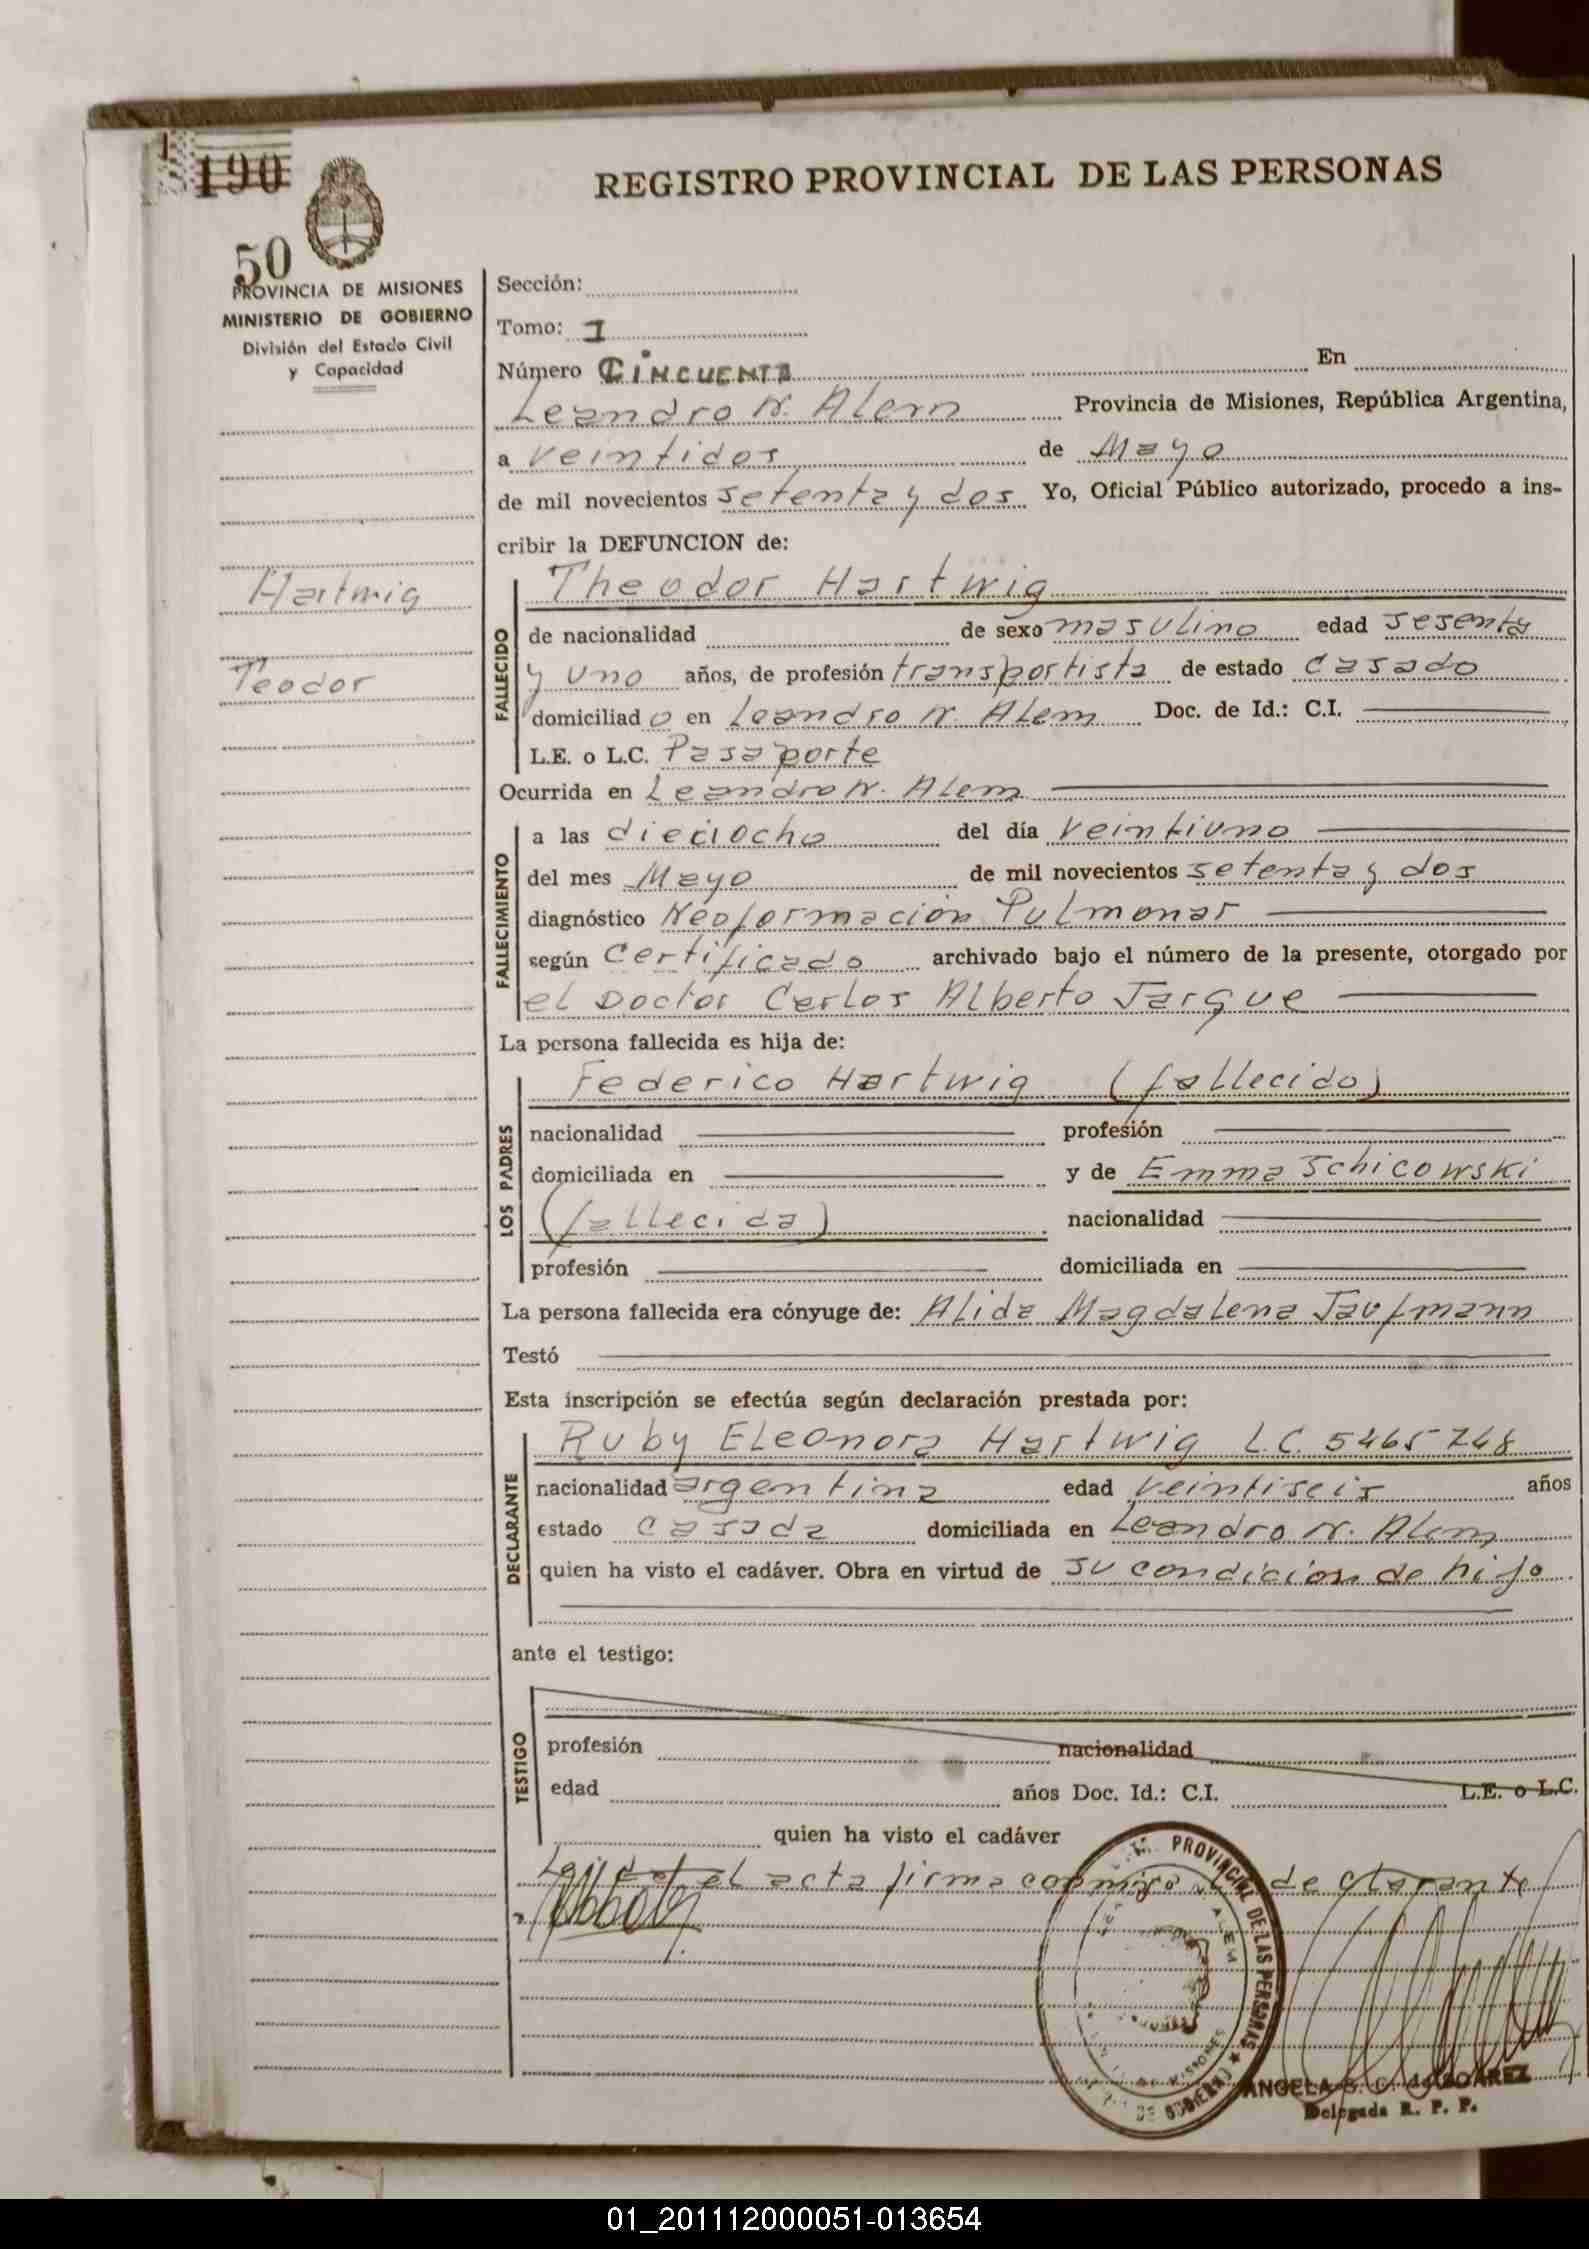 190
50
REGISTRO PROVINCIAL DE LAS PERSONAS
PROVINCIA DE MISIONES
MINISTERIO DE GOBIERNO
División del Estado Civil
y Capacidad
Hartwig
Teodor
Sección:
Tomo: I
Número CINCUENTA En
Leandro N. Alem Provincia de Misiones, República Argentina,
a veintidos de Mayo
de mil novecientos setenta y dos Yo, Oficial Público autorizado, procedo a ins-
cribir la DEFUNCION de:
FALLECIDO
Theodor Hartwig
de nacionalidad de sexo masulino edad sesenta
y uno años, de profesión transportista de estado casado
domiciliad o en Leandro N. Alem Doc. de Id.: C.I.
L.E. o L.C. Pasaporte
Ocurrida en Leandro N. Alem
FALLECIMIENTO
a las dieciocho del día veintiuno
del mes Mayo de mil novecientos setenta y dos
diagnóstico Neoformación Pulmonar
según certificado archivado bajo el número de la presente, otorgado por
el Doctor Carlos Alberto Jarque
La persona fallecida es hija de:
LOS PADRES
Federico Hartwig (fallecido)
nacionalidad profesión
domiciliada en y de Emma Schicowski
(fallecida) nacionalidad
profesión domiciliada en
La persona fallecida era cónyuge de: Alida Magdalena Jaufmann
Testó
Esta inscripción se efectúa según declaración prestada por:
DECLARANTE
Ruby Eleonora Hartwig L.C. 5465748
nacionalidad argentina edad veintiseis años
estado casada domiciliada en Leandro N. Alem
quien ha visto el cadáver. Obra en virtud de su condición de hijo
ante el testigo:
TESTIGO
profesión nacionalidad
edad años Doc. Id.: C.I. L.E. o L.C.
quien ha visto el cadáver
el acta firma conmigo declarante
PROVINCIAL DE LAS PERSONAS
ALEM
MISIONES
DE GOBIERNO
ANGELA SOAREZ
Delegada R. P. P.
01_201112000051-013654